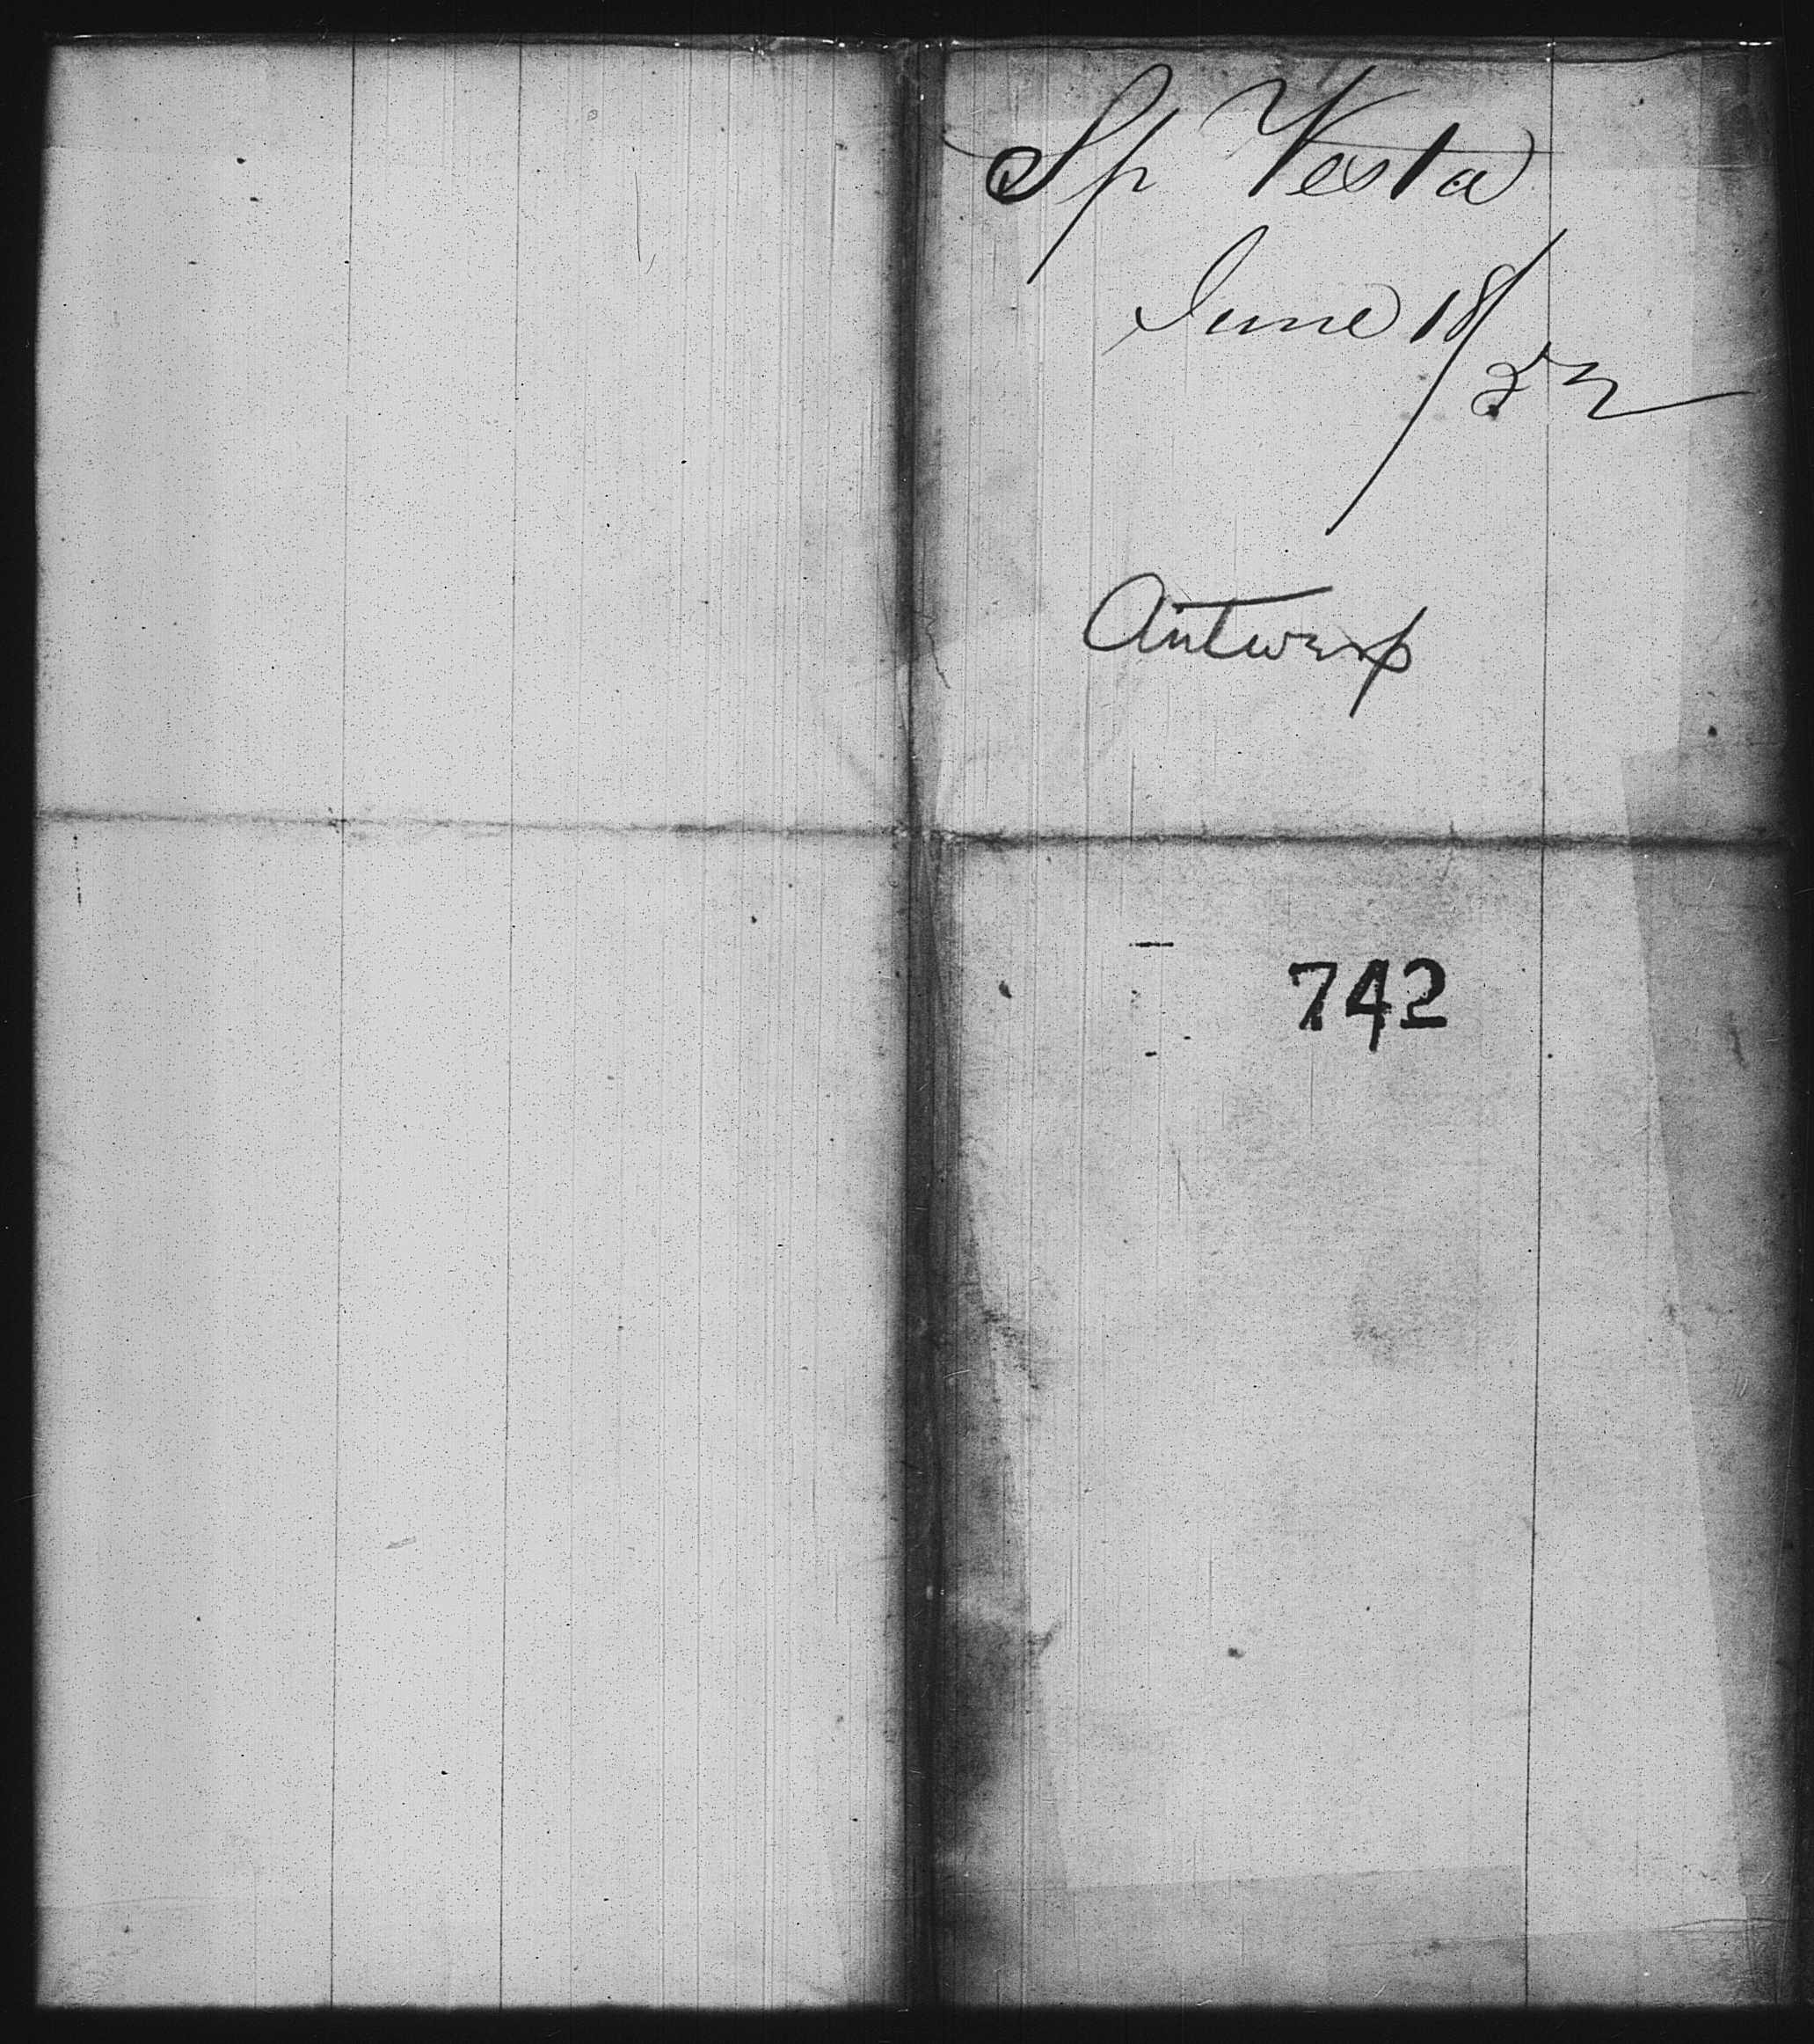 Sp Vesta
June 18/52
Antwerp
742